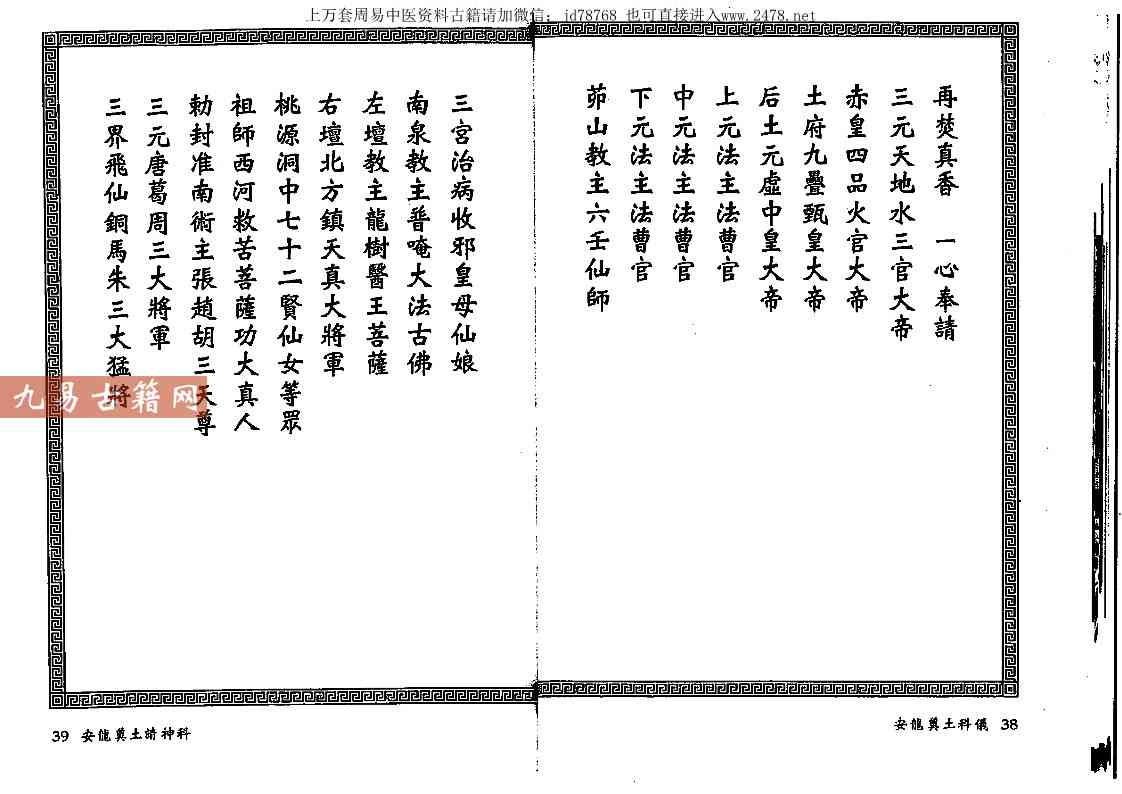 上万套周易中医资料古籍请加微信: jd78768 也可直接进入www.2478.net
再焚真香 一心奉請
三元天地水三官大帝
赤皇四品火官大帝
土府九疊甄皇大帝
后土元虛中皇大帝
上元法主法曹官
中元法主法曹官
下元法主法曹官
茆山教主六壬仙師
安龍奠土科儀 38
三宮治病收邪皇母仙娘
南泉教主普唵大法古佛
左壇教主龍樹醫王菩薩
右壇北方鎮天真大將軍
桃源洞中七十二賢仙女等眾
祖師西河救苦菩薩功大真人
勅封准南術主張趙胡三天尊
三元唐葛周三大將軍
三界飛仙銅馬朱三大猛將
39 安龍奠土請神科
九易古籍网